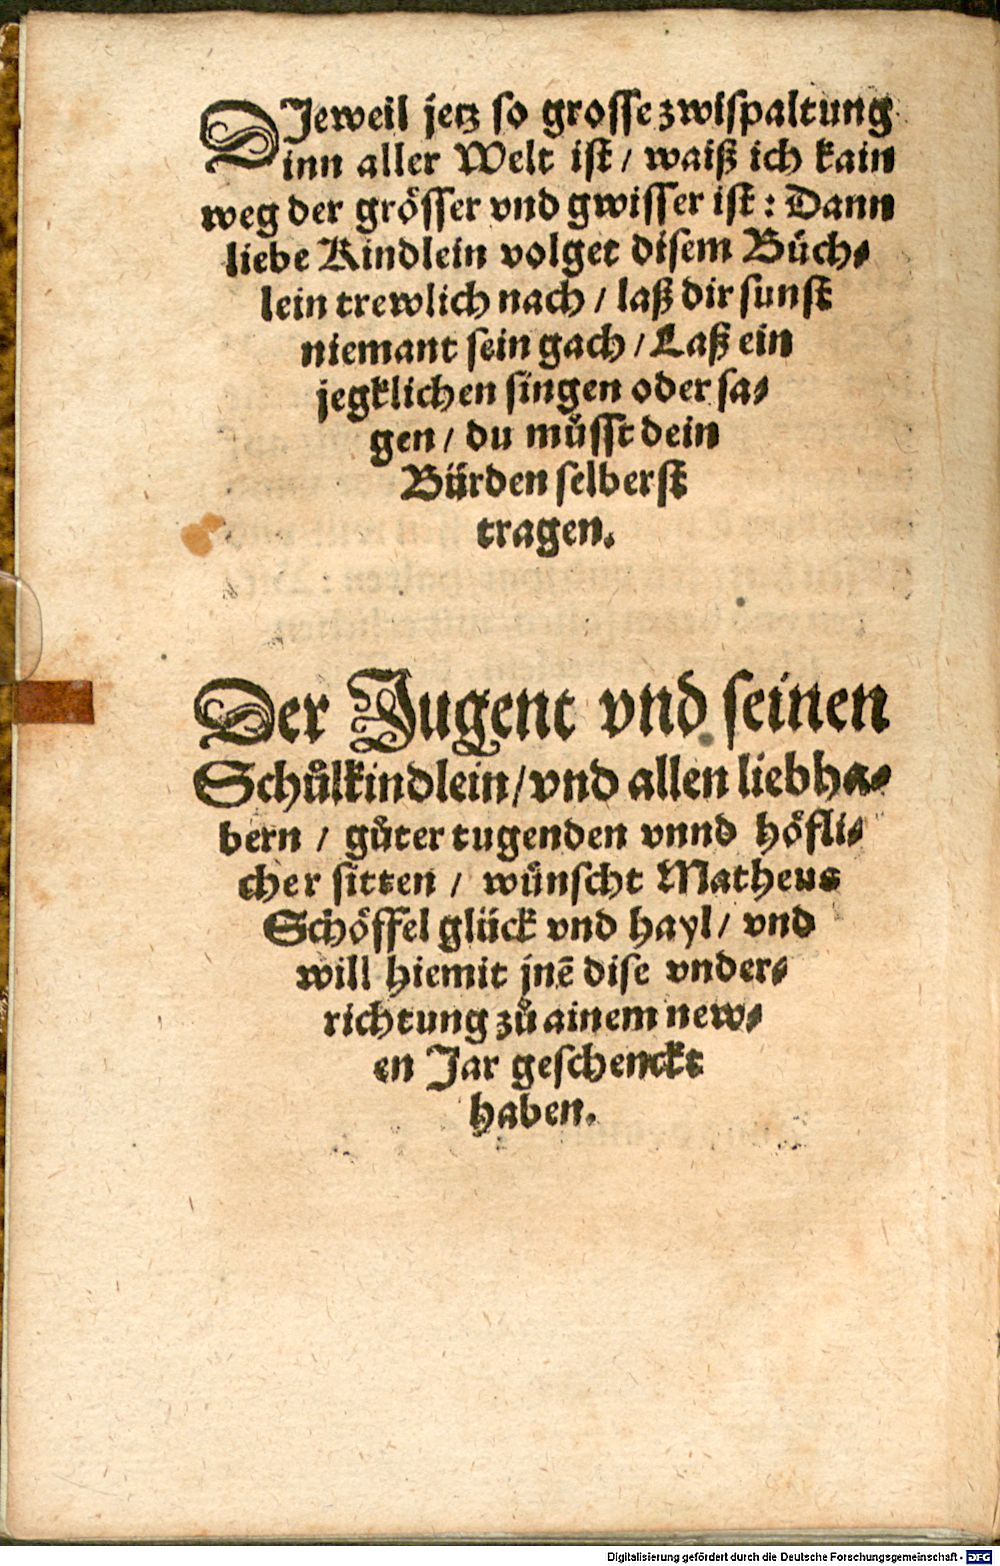 DJeweil jetz so grosse zwispaltung
inn aller Welt ist / waiß ich kain
weg der grösser vnd gwisser ist : Dann
liebe Kindlein volget disem Büch⸗
lein trewlich nach / laß dir sunst
niemant sein gach / Laß ein
jegklichen singen oder sa⸗
gen / du můsst dein
Bürden selberst
tragen.
Der Jugent vnd seinen
Schůlkindlein / vnd allen liebha⸗
bern / gůter tugenden vnnd höfli⸗
cher sitten / wünscht Matheus
Schöffel glück vnd hayl / vnd
will hiemit jnē dise vnder⸗
richtung zů ainem new⸗
en Jar geschenckt
haben.
Digitalisierung gefördert durch die Deutsche Forschungsgemeinschaft - DFG